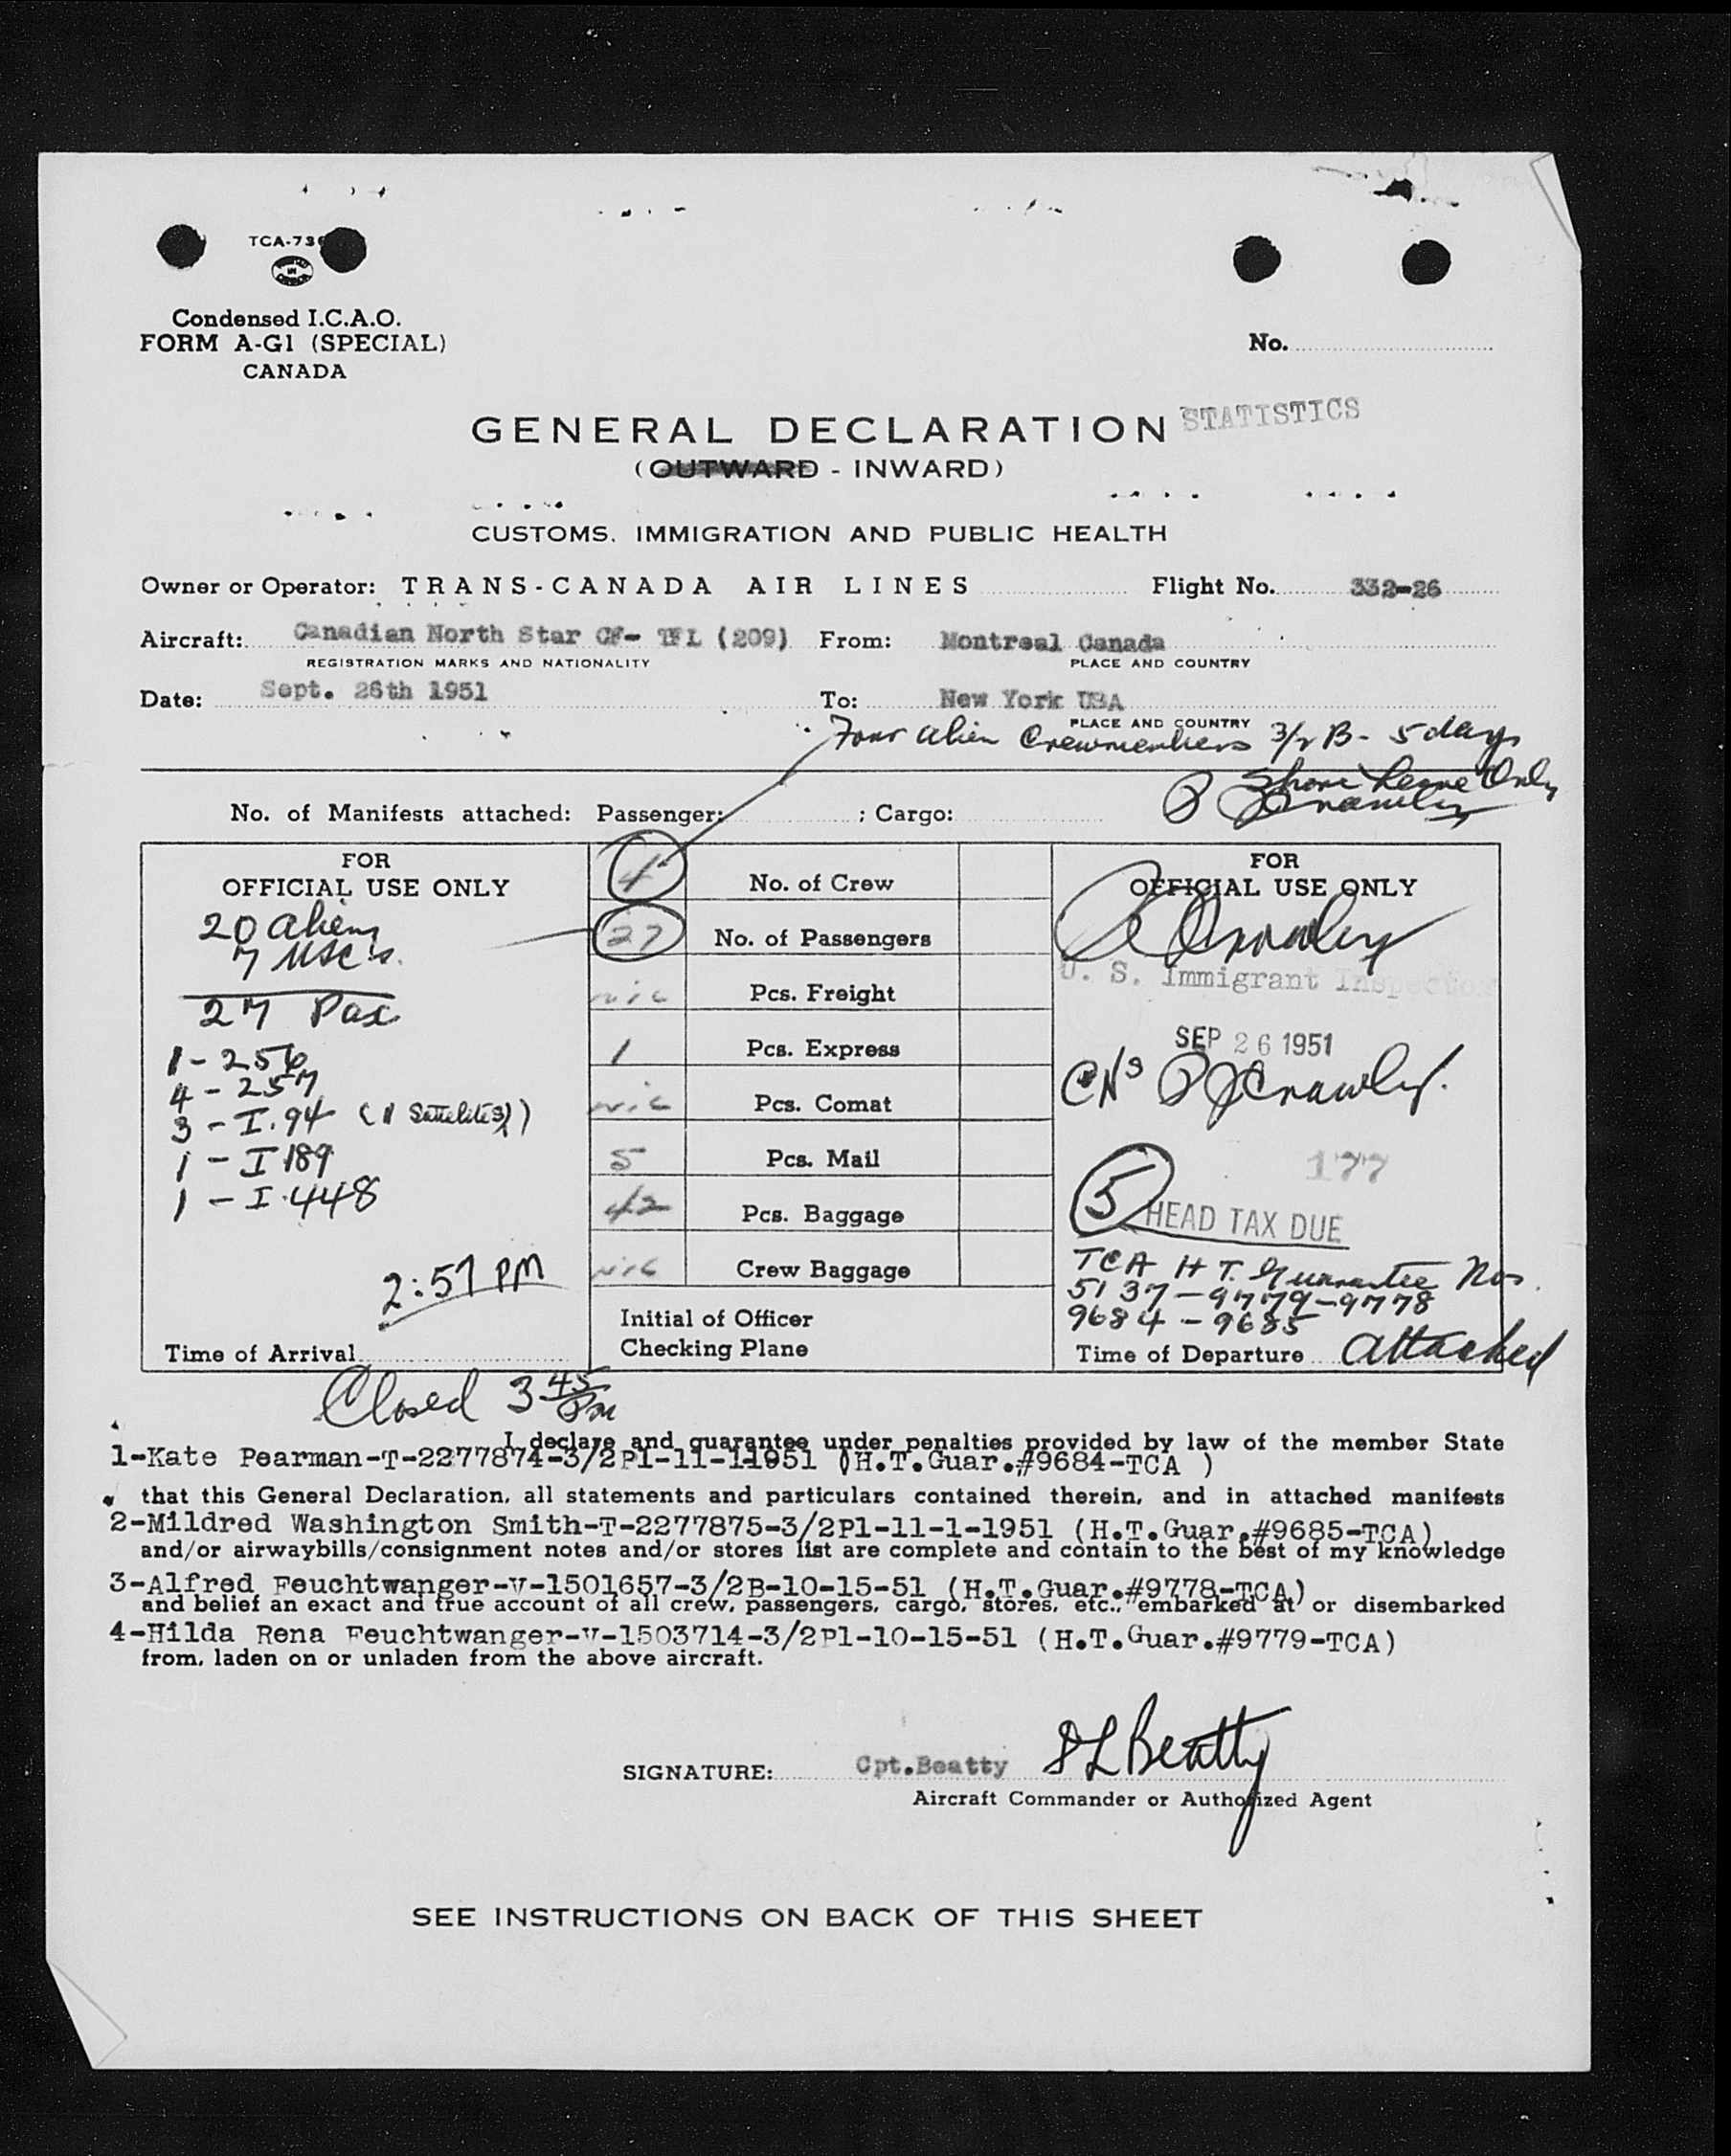 TCA-73
Condensed I.C.A.O.
FORM A-G1 (SPECIAL)
CANADA
No.
GENERAL DECLARATION STATISTICS
(OUTWARD - INWARD)
CUSTOMS, IMMIGRATION AND PUBLIC HEALTH
Owner or Operator: TRANS-CANADA AIR LINES Flight No. 332-26
Aircraft: Canadian North Star CF- TFL (209) From: Montreal Canada
REGISTRATION MARKS AND NATIONALITY PLACE AND COUNTRY
Date: Sept. 26th 1951 To: New York USA
PLACE AND COUNTRY
Four alien Crewmembers 3/2 B- 5 days
Shore Leave Only
P J Crawley
No. of Manifests attached: Passenger: ; Cargo:
FOR
OFFICIAL USE ONLY
20 aliens
7 USC's.
27 Pax
1-256
4-257
3-I.94 (
1-I 189
1-I.448
2:57 PM
Time of Arrival
4 No. of Crew
27 No. of Passengers
nic Pcs. Freight
1 Pcs. Express
nic Pcs. Comat
5 Pcs. Mail
42 Pcs. Baggage
nic Crew Baggage
Initial of Officer
Checking Plane
FOR
OFFICIAL USE ONLY
Crawley
U. S. Immigrant Inspector
SEP 26 1951
P J Crawley.
177
5 HEAD TAX DUE
TCA H T. Guarantee Nos.
5137-9779-9778
9684-9685
Time of Departure attached
Closed 3 45 PM
I declare and guarantee under penalties provided by law of the member State
1-Kate Pearman-T-2277874-3/2P1-11-1-1951 (H.T.Guar.#9684-TCA )
that this General Declaration, all statements and particulars contained therein, and in attached manifests
2-Mildred Washington Smith-T-2277875-3/2P1-11-1-1951 (H.T.Guar.#9685-TCA)
and/or airwaybills/consignment notes and/or stores list are complete and contain to the best of my knowledge
3-Alfred Feuchtwanger-V-1501657-3/2B-10-15-51 (H.T.Guar.#9778-TCA)
and belief an exact and true account of all crew, passengers, cargo, stores, etc., embarked at or disembarked
4-Hilda Rena Feuchtwanger-V-1503714-3/2P1-10-15-51 (H.T.Guar.#9779-TCA)
from, laden on or unladen from the above aircraft.
SIGNATURE: Cpt.Beatty Beatty
Aircraft Commander or Authorized Agent
SEE INSTRUCTIONS ON BACK OF THIS SHEET